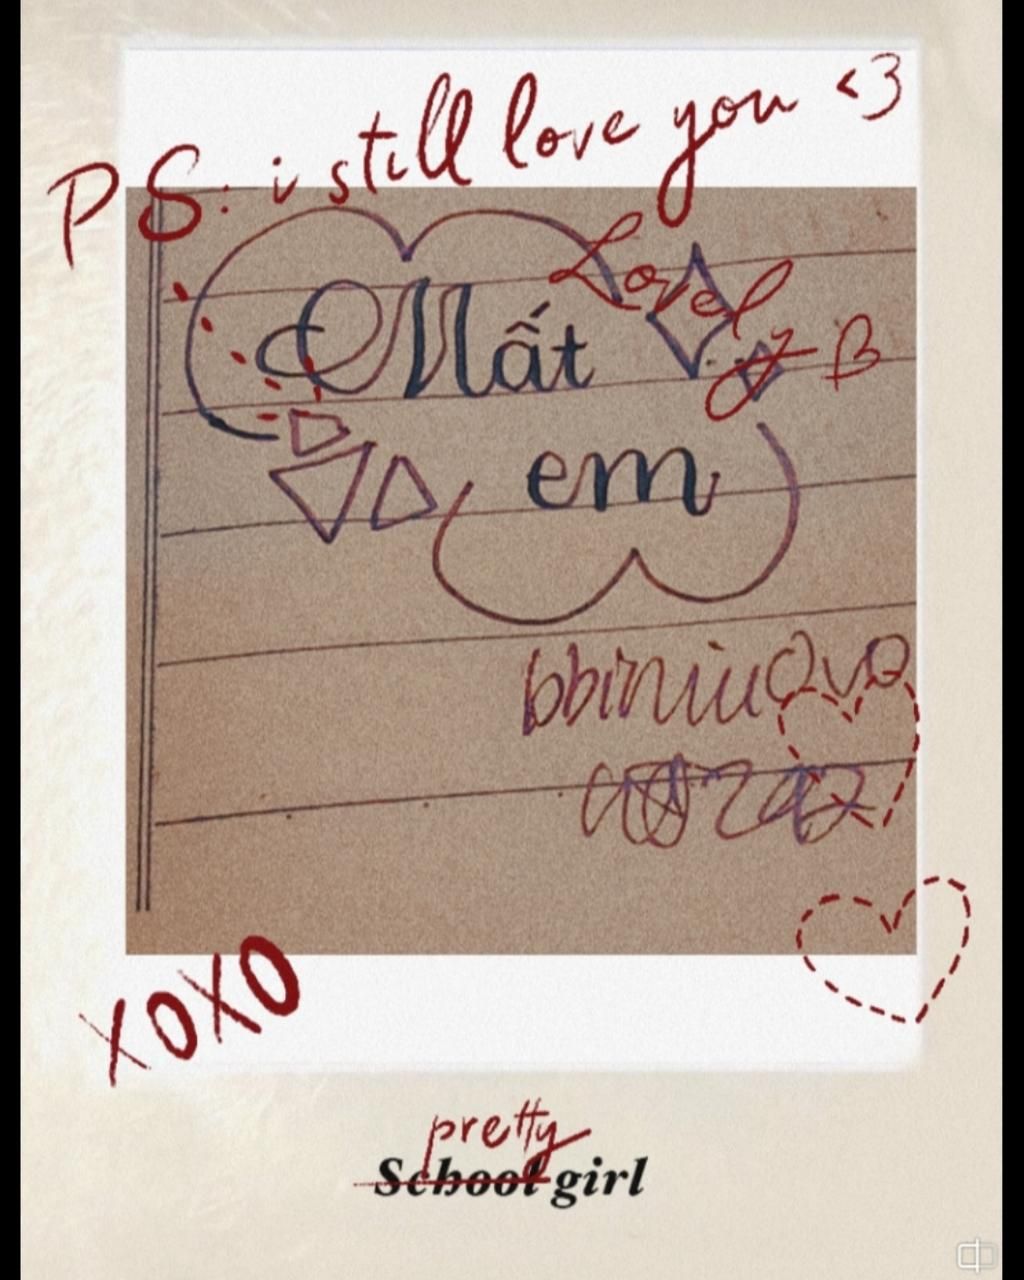 PS: i still love you <3
Lovely B
Mất
em
bbiniuOvO
XOXO
pretty
School girl